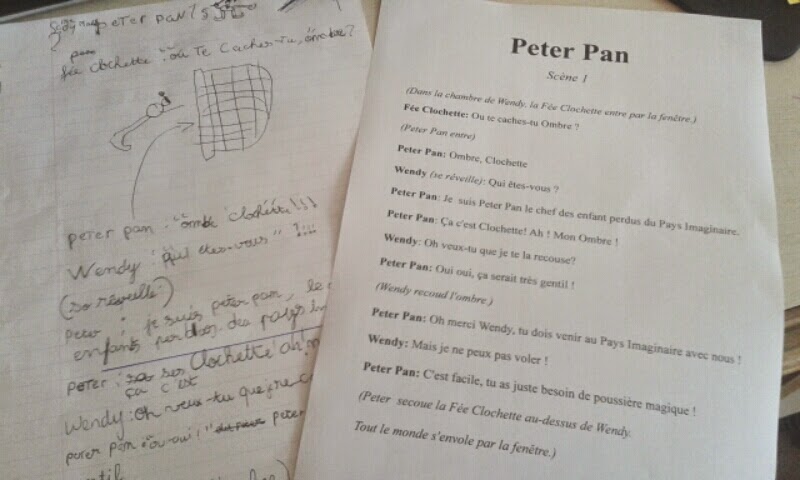 PETER PAN
fée Clochette : où Te Caches-Tu, ombre?
peter pan : "ombre clochette!!!
Wendy : "qui êtes-vous" ?!!!
(se réveille)
: je suis peter pan, le
enfants perdus des pays
peter : Clochette ah!
ça c'est
Wendy : oh veux-tu que
peter
Peter Pan
Scène 1
(Dans la chambre de Wendy, la Fée Clochette entre par la fenêtre.)
Fée Clochette: Ou te caches-tu Ombre ?
(Peter Pan entre)
Peter Pan: Ombre, Clochette
Wendy (se réveille): Qui êtes-vous ?
Peter Pan: Je suis Peter Pan le chef des enfant perdus du Pays Imaginaire.
Peter Pan: Ça c'est Clochette! Ah ! Mon Ombre !
Wendy: Oh veux-tu que je te la recouse?
Peter Pan: Oui oui, ça serait très gentil !
(Wendy recoud l'ombre.)
Peter Pan: Oh merci Wendy, tu dois venir au Pays Imaginaire avec nous !
Wendy: Mais je ne peux pas voler !
Peter Pan: C'est facile, tu as juste besoin de poussière magique !
(Peter secoue la Fée Clochette au-dessus de Wendy.
Tout le monde s'envole par la fenêtre.)